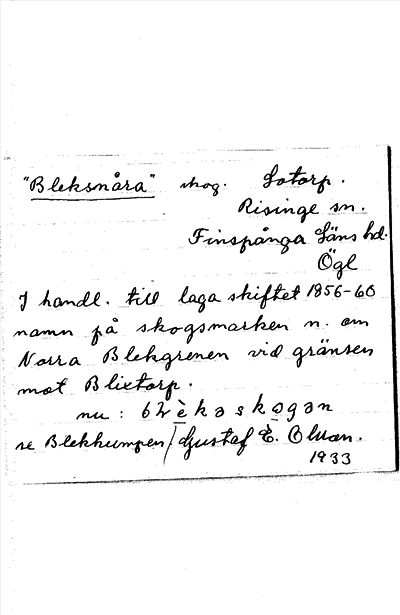 "Bleksnåra" skog. Lotorp.
Risinge sn.
Finspånga Läns hd.
Ögl
I handl. till laga skiftet 1856-60
namn på skogsmarken n. om
Norra Blekgrenen vid gränsen
mot Blixtorp.
nu:
se Blekkumpen / Gustaf E. Olsson.
1933